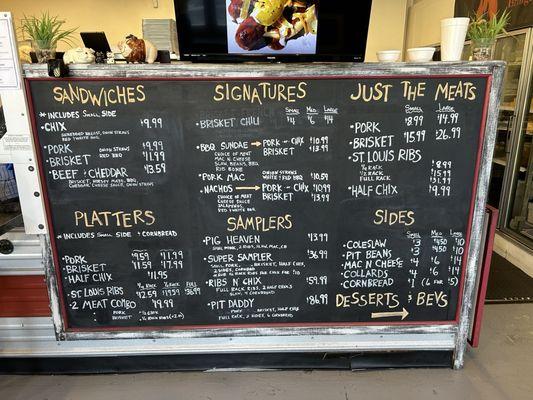 SANDWICHES
*INCLUDES SMALL SIDE
•CHIX $9.99
SHREDDED BREAST, ONION STRAWS
WHITE BBQ
•PORK ONION STRAWS $9.99
•BRISKET RED BBQ $11.99
•BEEF & CHEDDAR $13.59
BRISKET, SMOKEY MAYO, BBQ
CHEDDAR CHEESE SAUCE, ONION STRAWS
PLATTERS
*INCLUDES SMALL SIDE & CORNBREAD
•PORK $9.59 $11.99
•BRISKET $11.59 $17.99
•HALF CHIX $11.95
•ST LOUIS RIBS $12.59 $19.59 $36.99
•2 MEAT COMBO $19.99
SIGNATURES
SMALL MED LARGE
•BRISKET CHILI $4 $6 $14
•BBQ SUNDAE PORK - CHIX $10.99
CHOICE OF MEAT BRISKET $13.99
MAC N CHEESE
SLAW, BEANS, BBQ
RIB BONE
•PORK MAC ONION STRAWS $10.59
WHITE & RED BBQ
•NACHOS PORK - CHIX $10.99
CHOICE OF MEAT BRISKET $13.99
CHEESE SAUCE
JALAPENOS
SAMPLERS
•PIG HEAVEN $13.99
•SUPER SAMPLER $36.99
•RIBS N' CHIX $59.99
•PIT DADDY $86.99
JUST THE MEATS
SMALL LARGE
•PORK $8.99 $14.99
•BRISKET $15.99 $26.99
•ST LOUIS RIBS
¼ RACK $8.99
½ RACK $15.99
FULL RACK $31.99
•HALF CHIX $9.99
SIDES
SMALL MED LARGE
•COLESLAW $3 $4.50 $10
•PIT BEANS $3 $4.50 $10
•MAC N CHEESE $4 $6 $14
•COLLARDS $4 $6 $14
•CORNBREAD $1 (6 FOR $5)
DESSERTS & BEVS